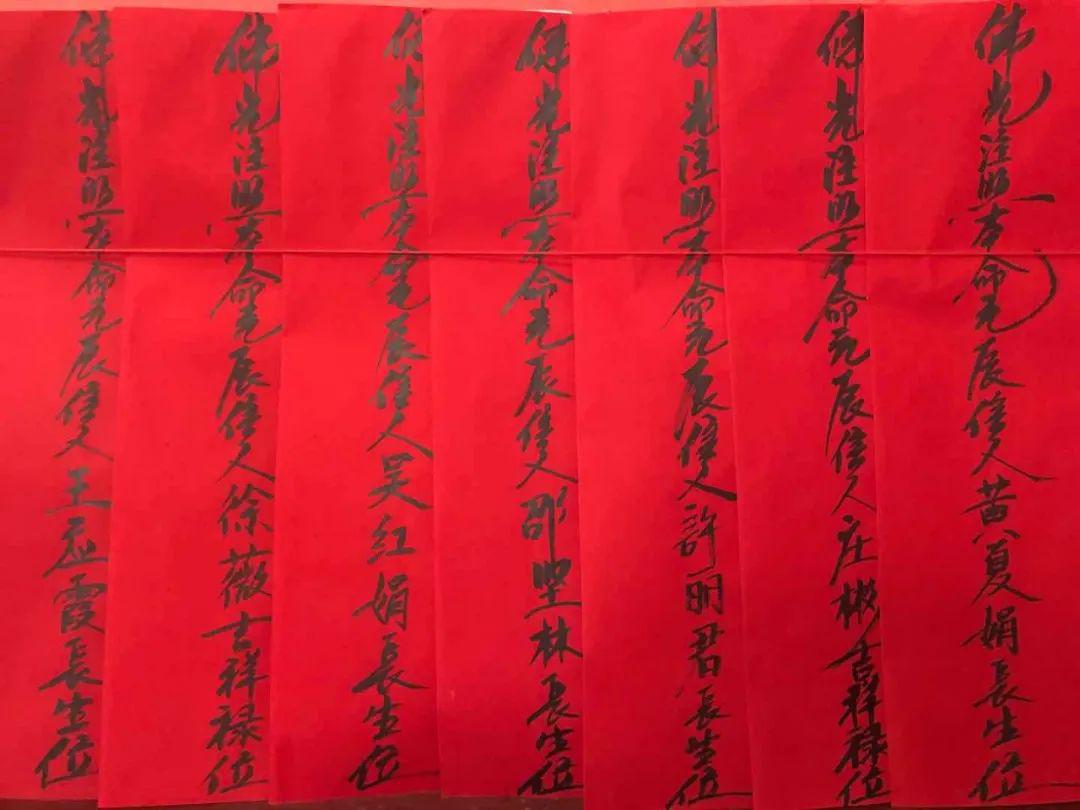 佛光注照本命元辰信人黄夏娟長生位
佛光注照本命元辰信人庄彬吉祥禄位
佛光注照本命元辰信人許明君長生位
佛光注照本命元辰信人邵坚林長生位
佛光注照本命元辰信人吴红娟長生位
佛光注照本命元辰信人徐薇吉祥禄位
佛光注照本命元辰信人王亚霞長生位